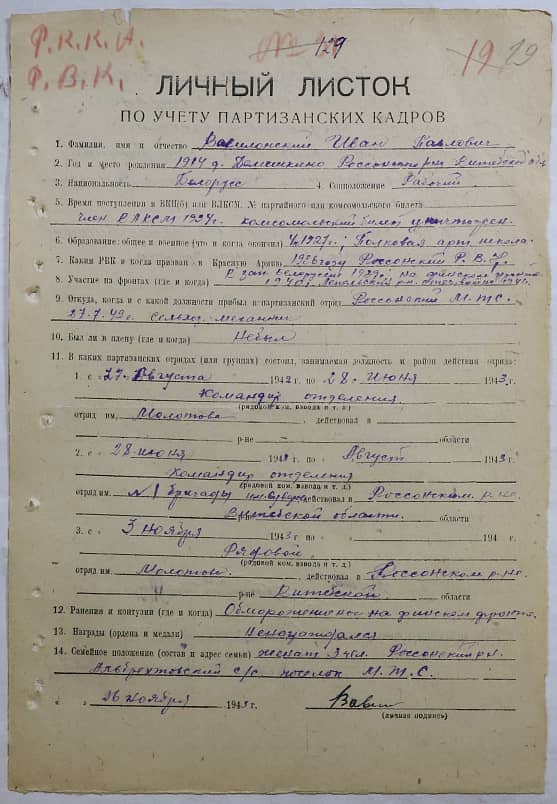 Р.К.К.А. № 129 19 19
Р.В.К.
ЛИЧНЫЙ ЛИСТОК
ПО УЧЕТУ ПАРТИЗАНСКИХ КАДРОВ
1. Фамилия, имя и отчество Вавилонский Иван Павлович
2. Год и место рождения 1904 д. Россонского р-на Витебской обл.
3. Национальность Белорусс 4. Соцположение Рабочий
5. Время поступления в ВКП(б) или ВЛКСМ, № партийного или комсомольского билета
член ВЛКСМ комсомольский билет уничтожен.
6. Образование: общее и военное (что и когда окончил) Полковая арт. школа
7. Каким РВК и когда призван в Красную Армию Россонский Р.В.К.
8. Участие на фронтах (где и когда) В зап. Белоруссии 1939 г., на финском фронте
1940 г.
9. Откуда, когда и с какой должности прибыл в партизанский отряд Россонский М.Т.С.
27.7.42 г. механик
10. Был ли в плену (где и когда) Небыл
11. В каких партизанских отрядах (или группах) состоял, занимаемая должность и район действия отряда:
1. с 27 Августа 1942 г. по 28 июня 1943 г.
Командир отделения
(рядовой, ком. взвода и т. д.)
отряд им. Молотова, действовал в
р-не области
2. с 28 июня 1943 г. по Август 1943 г.
Командир отделения
(рядовой ком. взвода и т. д.)
отряд им. №1 бригады действовал в Россонском р-не
Витебской области. области
3. с 3 ноября 1943 г. по 194 г.
Рядовой.
(рядовой, ком. взвода и т. д.)
отряд им. Молотов. действовал в Россонском р-не.
р-не Витебской области
12. Ранения и контузии (где и когда) на финском фронте
13. Награды (ордена и медали) Ненаграждался
14. Семейное положение (состав и адрес семьи) женат Россонский р-н
с/с. поселок М.Т.С.
26 ноября 1943 г.
(личная подпись)